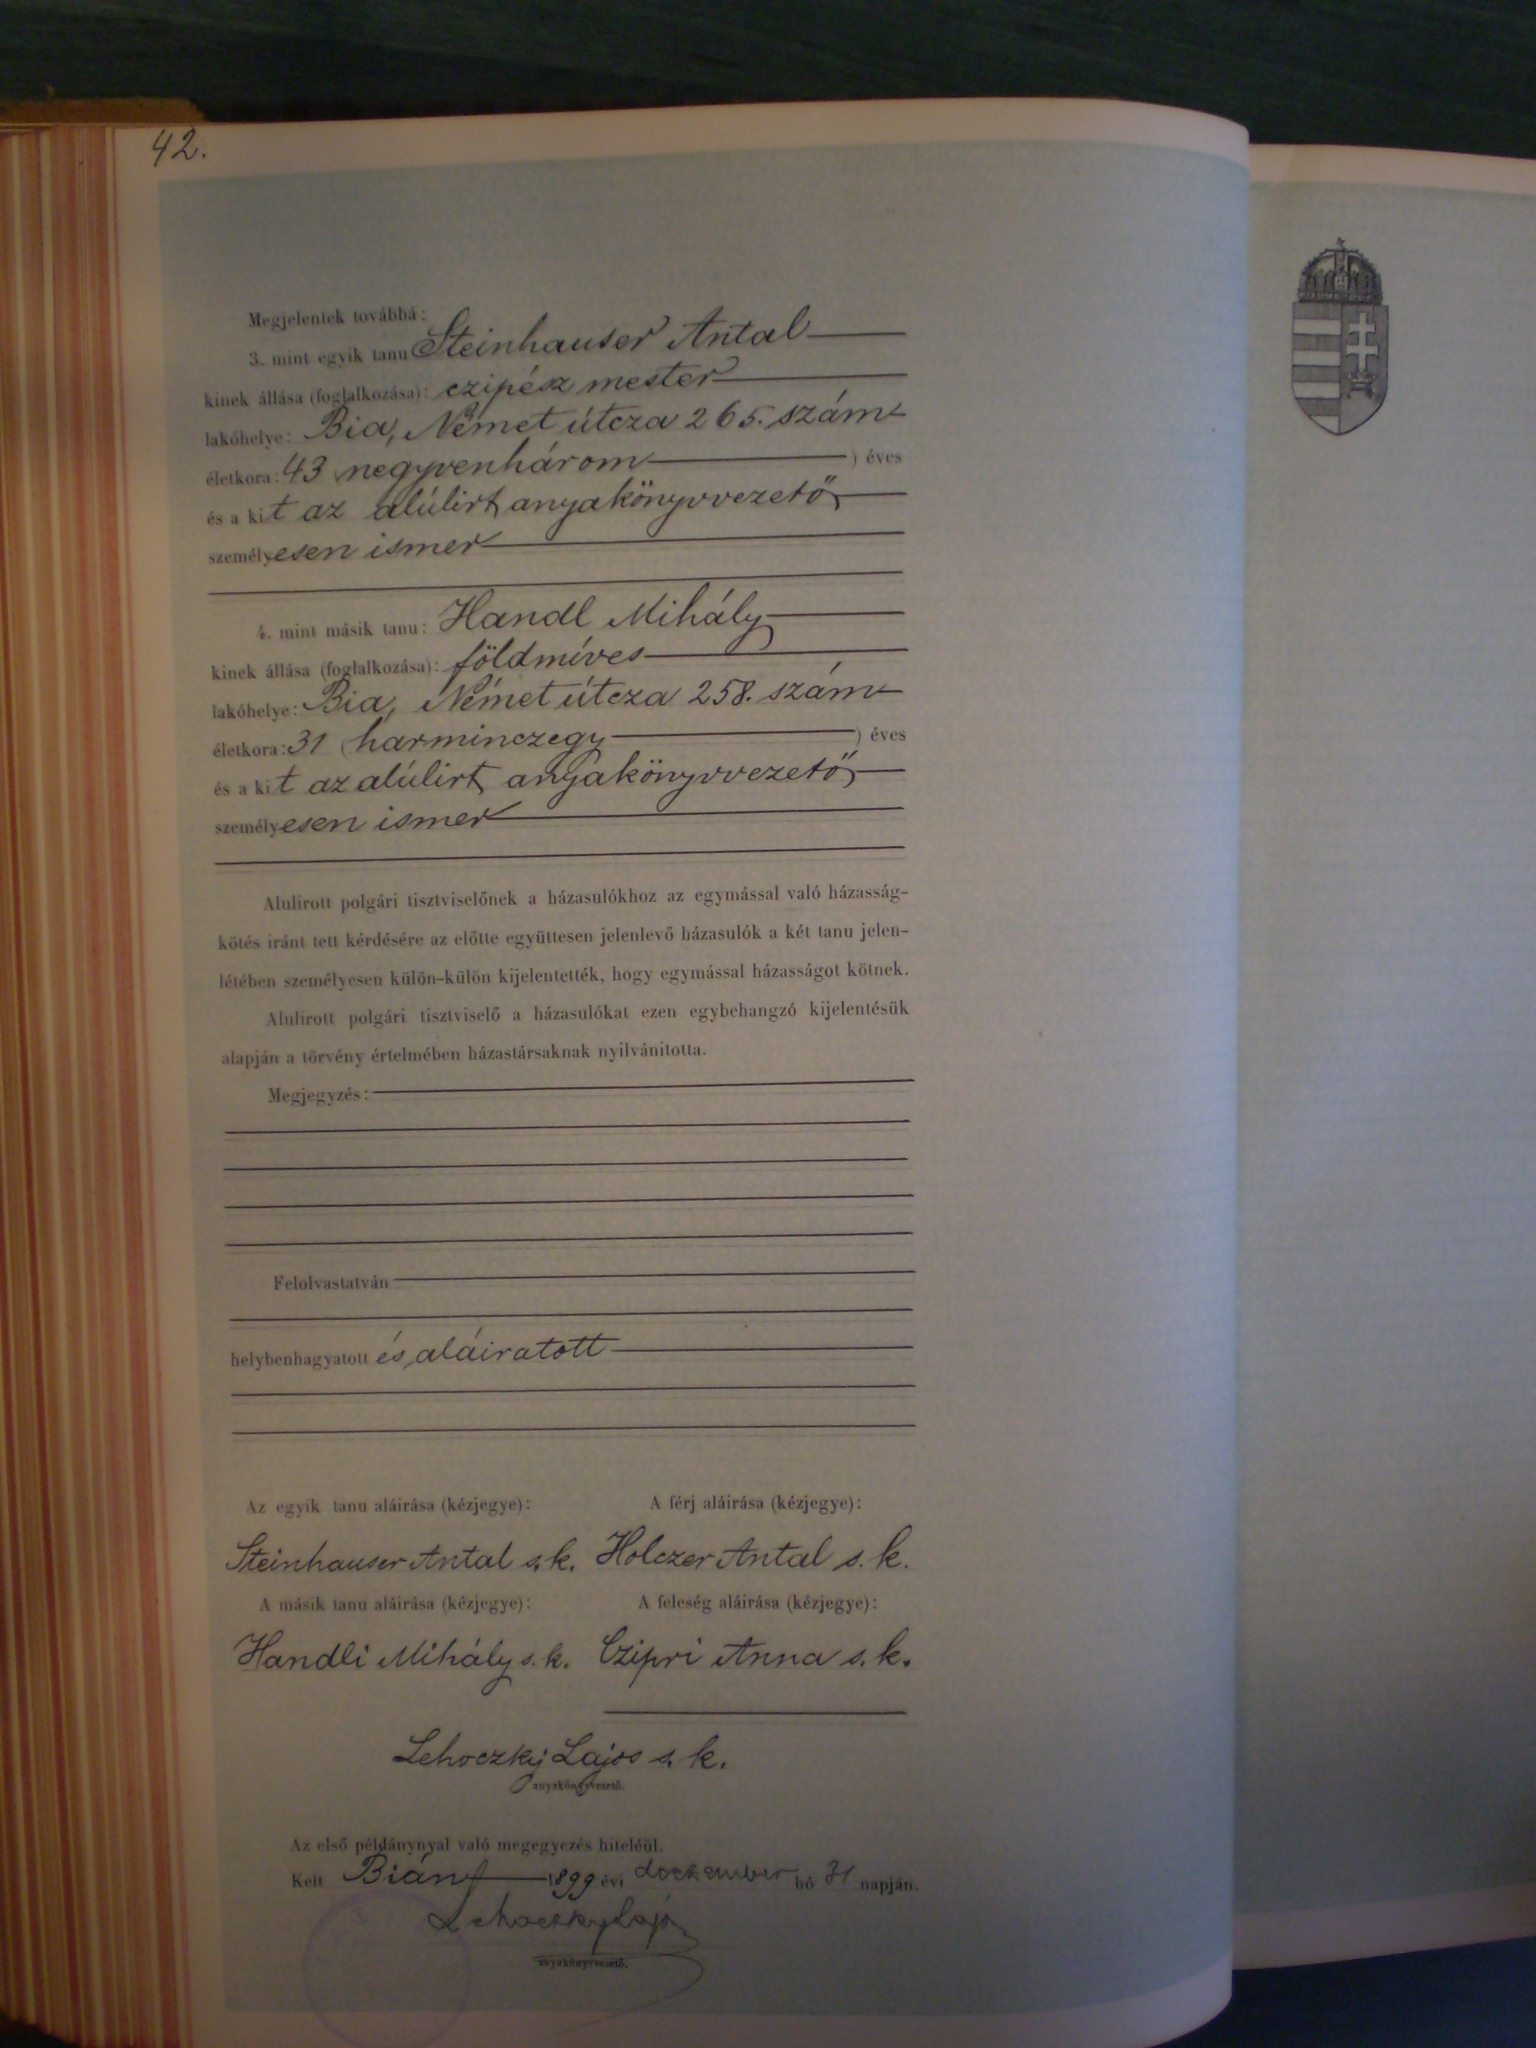 42.
Megjelentek továbbá:
3. mint egyik tanu Steinhauser Antal
kinek állása (foglalkozása): czipész mester
lakóhelye: Bia, Német útcza 265. szám
életkora: 43 (negyvenhárom) éves
és a kit az alúlirt anyakönyvvezető
személyesen ismer
4. mint másik tanu: Handl Mihály
kinek állása (foglalkozása): földmíves
lakóhelye: Bia, Német útcza 258. szám
életkora: 31 (harminczegy) éves
és a kit az alúlirt anyakönyvvezető
személyesen ismer
Alulirott polgári tisztviselőnek a házasulókhoz az egymással való házasság-
kötés iránt tett kérdésére az előtte együttesen jelenlevő házasulók a két tanu jelen-
létében személyesen külön-külön kijelentették, hogy egymással házasságot kötnek.
Alulirott polgári tisztviselő a házasulókat ezen egybehangzó kijelentésük
alapján a törvény értelmében házastársaknak nyilvánitotta.
Megjegyzés:
Felolvastatván
helybenhagyatott és aláiratott
Az egyik tanu aláirása (kézjegye): A férj aláirása (kézjegye):
Steinhauser Antal s.k. Holczer Antal s. k.
A másik tanu aláirása (kézjegye): A feleség aláirása (kézjegye):
Handli Mihály s.k. Czipri Anna s.k.
Lehoczky Lajos s. k.
anyakönyvvezető.
Az első példánynyal való megegyezés hiteléül.
Kelt Bián 1899 évi deczember hó 31 napján.
Lehoczky Lajos
anyakönyvvezető.